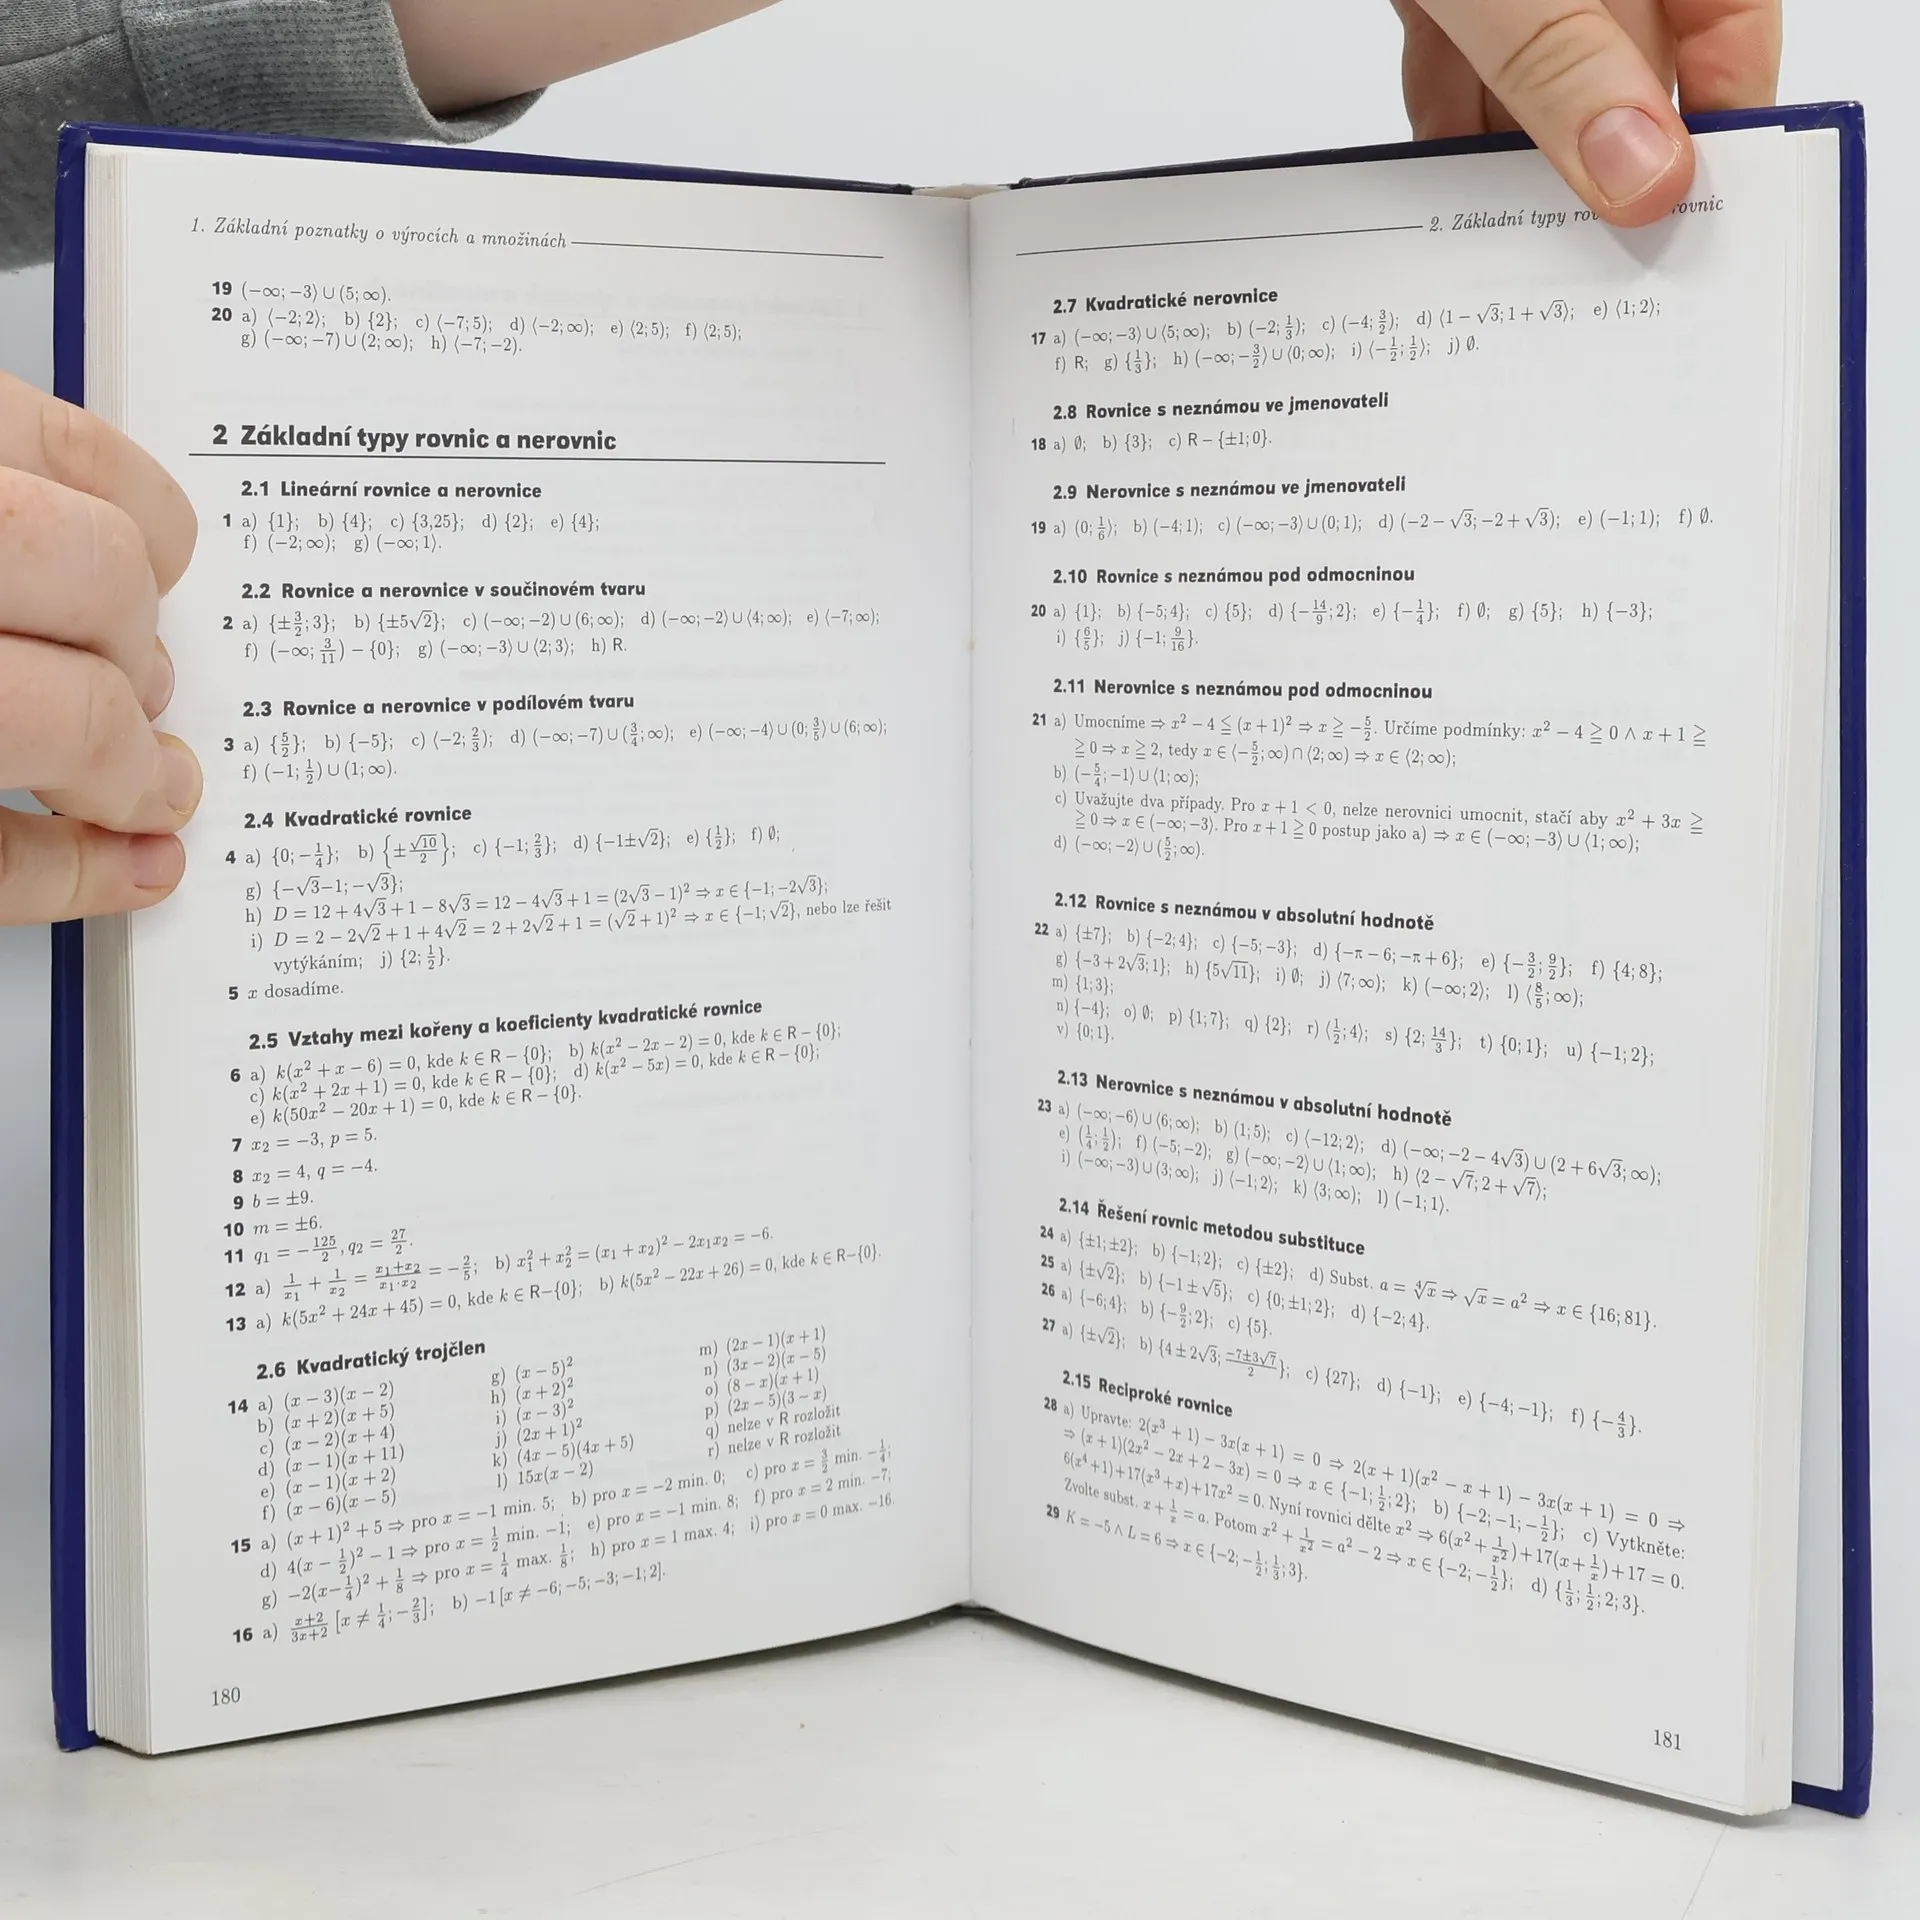 1. Základní poznatky o výrocích a množinách
19 (−∞; −3⟩ ∪ (5; ∞).
20 a) ⟨−2; 2⟩; b) {2}; c) ⟨−7; 5⟩; d) ⟨−2; ∞); e) ⟨2; 5⟩; f) ⟨2; 5⟩;
g) (−∞; −7) ∪ (2; ∞); h) ⟨−7; −2).
2 Základní typy rovnic a nerovnic
2.1 Lineární rovnice a nerovnice
1 a) {1}; b) {4}; c) {3,25}; d) {2}; e) {4};
f) (−2; ∞); g) (−∞; 1⟩.
2.2 Rovnice a nerovnice v součinovém tvaru
2 a) {±3/2; 3}; b) {±5√2}; c) (−∞; −2) ∪ (6; ∞); d) (−∞; −2) ∪ ⟨4; ∞); e) ⟨−7; ∞);
f) (−∞; 3/11) − {0}; g) (−∞; −3⟩ ∪ ⟨2; 3⟩; h) R.
2.3 Rovnice a nerovnice v podílovém tvaru
3 a) {5/2}; b) {−5}; c) ⟨−2; 2/3); d) (−∞; −7) ∪ (3/4; ∞); e) (−∞; −4) ∪ (0; 3/5) ∪ (6; ∞);
f) (−1; 1/2) ∪ (1; ∞).
2.4 Kvadratické rovnice
4 a) {0; −1/4}; b) {±√10/2}; c) {−1; 2/3}; d) {−1±√2}; e) {1/2}; f) ∅;
g) {−√3−1; −√3};
h) D = 12 + 4√3 + 1 − 8√3 = 12 − 4√3 + 1 = (2√3 − 1)² ⇒ x ∈ {−1; −2√3};
i) D = 2 − 2√2 + 1 + 4√2 = 2 + 2√2 + 1 = (√2 + 1)² ⇒ x ∈ {−1; √2}, nebo lze řešit
vytýkáním; j) {2; 1/2}.
5 x dosadíme.
2.5 Vztahy mezi kořeny a koeficienty kvadratické rovnice
6 a) k(x² + x − 6) = 0, kde k ∈ R − {0}; b) k(x² − 2x − 2) = 0, kde k ∈ R − {0};
c) k(x² + 2x + 1) = 0, kde k ∈ R − {0}; d) k(x² − 5x) = 0, kde k ∈ R − {0};
e) k(50x² − 20x + 1) = 0, kde k ∈ R − {0}.
7 x₂ = −3, p = 5.
8 x₂ = 4, q = −4.
9 b = ±9.
10 m = ±6.
11 q₁ = −125/2, q₂ = 27/2.
12 a) 1/x₁ + 1/x₂ = (x₁+x₂)/(x₁·x₂) = −2/5; b) x₁² + x₂² = (x₁ + x₂)² − 2x₁x₂ = −6.
13 a) k(5x² + 24x + 45) = 0, kde k ∈ R−{0}; b) k(5x² − 22x + 26) = 0, kde k ∈ R−{0}.
2.6 Kvadratický trojčlen
14 a) (x − 3)(x − 2)
b) (x + 2)(x + 5)
c) (x − 2)(x + 4)
d) (x − 1)(x + 11)
e) (x − 1)(x + 2)
f) (x − 6)(x − 5)
g) (x − 5)²
h) (x + 2)²
i) (x − 3)²
j) (2x + 1)²
k) (4x − 5)(4x + 5)
l) 15x(x − 2)
m) (2x − 1)(x + 1)
n) (3x − 2)(x − 5)
o) (8 − x)(x + 1)
p) (2x − 5)(3 − x)
q) nelze v R rozložit
r) nelze v R rozložit
15 a) (x + 1)² + 5 ⇒ pro x = −1 min. 5; b) pro x = −2 min. 0; c) pro x = 3/2 min. −1/4;
d) 4(x − 1/2)² − 1 ⇒ pro x = 1/2 min. −1; e) pro x = −1 min. 8; f) pro x = 2 min. −7;
g) −2(x−1/4)² + 1/8 ⇒ pro x = 1/4 max. 1/8; h) pro x = 1 max. 4; i) pro x = 0 max. −16.
16 a) (x+2)/(3x+2) [x ≠ 1/4; −2/3]; b) −1 [x ≠ −6; −5; −3; −1; 2].
180
2. Základní typy rovnic
2.7 Kvadratické nerovnice
17 a) (−∞; −3) ∪ ⟨5; ∞); b) (−2; 1/3); c) (−4; 3/2); d) ⟨1 − √3; 1 + √3⟩; e) ⟨1; 2⟩;
f) R; g) {1/3}; h) (−∞; −3/2⟩ ∪ ⟨0; ∞); i) ⟨−1/2; 1/2⟩; j) ∅.
2.8 Rovnice s neznámou ve jmenovateli
18 a) ∅; b) {3}; c) R − {±1; 0}.
2.9 Nerovnice s neznámou ve jmenovateli
19 a) (0; 1/6⟩; b) (−4; 1); c) (−∞; −3) ∪ (0; 1); d) (−2 − √3; −2 + √3); e) (−1; 1); f) ∅.
2.10 Rovnice s neznámou pod odmocninou
20 a) {1}; b) {−5; 4}; c) {5}; d) {−14/9; 2}; e) {−1/4}; f) ∅; g) {5}; h) {−3};
i) {6/5}; j) {−1; 9/16}.
2.11 Nerovnice s neznámou pod odmocninou
21 a) Umocníme ⇒ x² − 4 ≦ (x + 1)² ⇒ x ≧ −5/2. Určíme podmínky: x² − 4 ≧ 0 ∧ x + 1 ≧
≧ 0 ⇒ x ≧ 2, tedy x ∈ ⟨−5/2; ∞) ∩ ⟨2; ∞) ⇒ x ∈ ⟨2; ∞);
b) (−5/4; −1⟩ ∪ ⟨1; ∞);
c) Uvažujte dva případy. Pro x + 1 < 0, nelze nerovnici umocnit, stačí aby x² + 3x ≧
≧ 0 ⇒ x ∈ (−∞; −3⟩. Pro x + 1 ≧ 0 postup jako a) ⇒ x ∈ (−∞; −3⟩ ∪ ⟨1; ∞);
d) (−∞; −2) ∪ (5/2; ∞).
2.12 Rovnice s neznámou v absolutní hodnotě
22 a) {±7}; b) {−2; 4}; c) {−5; −3}; d) {−π − 6; −π + 6}; e) {−3/2; 9/2}; f) {4; 8};
g) {−3 + 2√3; 1}; h) {5√11}; i) ∅; j) ⟨7; ∞); k) (−∞; 2⟩; l) ⟨8/5; ∞);
m) {1; 3};
n) {−4}; o) ∅; p) {1; 7}; q) {2}; r) ⟨1/2; 4⟩; s) {2; 14/3}; t) {0; 1}; u) {−1; 2};
v) {0; 1}.
2.13 Nerovnice s neznámou v absolutní hodnotě
23 a) (−∞; −6⟩ ∪ ⟨6; ∞); b) (1; 5); c) ⟨−12; 2⟩; d) (−∞; −2 − 4√3) ∪ (2 + 6√3; ∞);
e) (1/4; 1/2); f) (−5; −2); g) (−∞; −2) ∪ ⟨1; ∞); h) ⟨2 − √7; 2 + √7⟩;
i) (−∞; −3) ∪ (3; ∞); j) ⟨−1; 2⟩; k) ⟨3; ∞); l) (−1; 1).
2.14 Řešení rovnic metodou substituce
24 a) {±1; ±2}; b) {−1; 2}; c) {±2}; d) Subst. a = ⁴√x ⇒ √x = a² ⇒ x ∈ {16; 81}.
25 a) {±√2}; b) {−1 ± √5}; c) {0; ±1; 2}; d) {−2; 4}.
26 a) {−6; 4}; b) {−9/2; 2}; c) {5}.
27 a) {±√2}; b) {4 ± 2√3; (−7±3√7)/2}; c) {27}; d) {−1}; e) {−4; −1}; f) {−4/3}.
2.15 Reciproké rovnice
28 a) Upravte: 2(x³ + 1) − 3x(x + 1) = 0 ⇒ 2(x + 1)(x² − x + 1) − 3x(x + 1) = 0 ⇒
⇒ (x + 1)(2x² − 2x + 2 − 3x) = 0 ⇒ x ∈ {−1; 1/2; 2}; b) {−2; −1; −1/2}; c) Vytkněte:
6(x⁴ + 1) + 17(x³ + x) + 17x² = 0. Nyní rovnici dělte x² ⇒ 6(x² + 1/x²) + 17(x + 1/x) + 17 = 0.
Zvolte subst. x + 1/x = a. Potom x² + 1/x² = a² − 2 ⇒ x ∈ {−2; −1/2}; d) {1/3; 1/2; 2; 3}.
29 K = −5 ∧ L = 6 ⇒ x ∈ {−2; −1/2; 1/3; 3}.
181